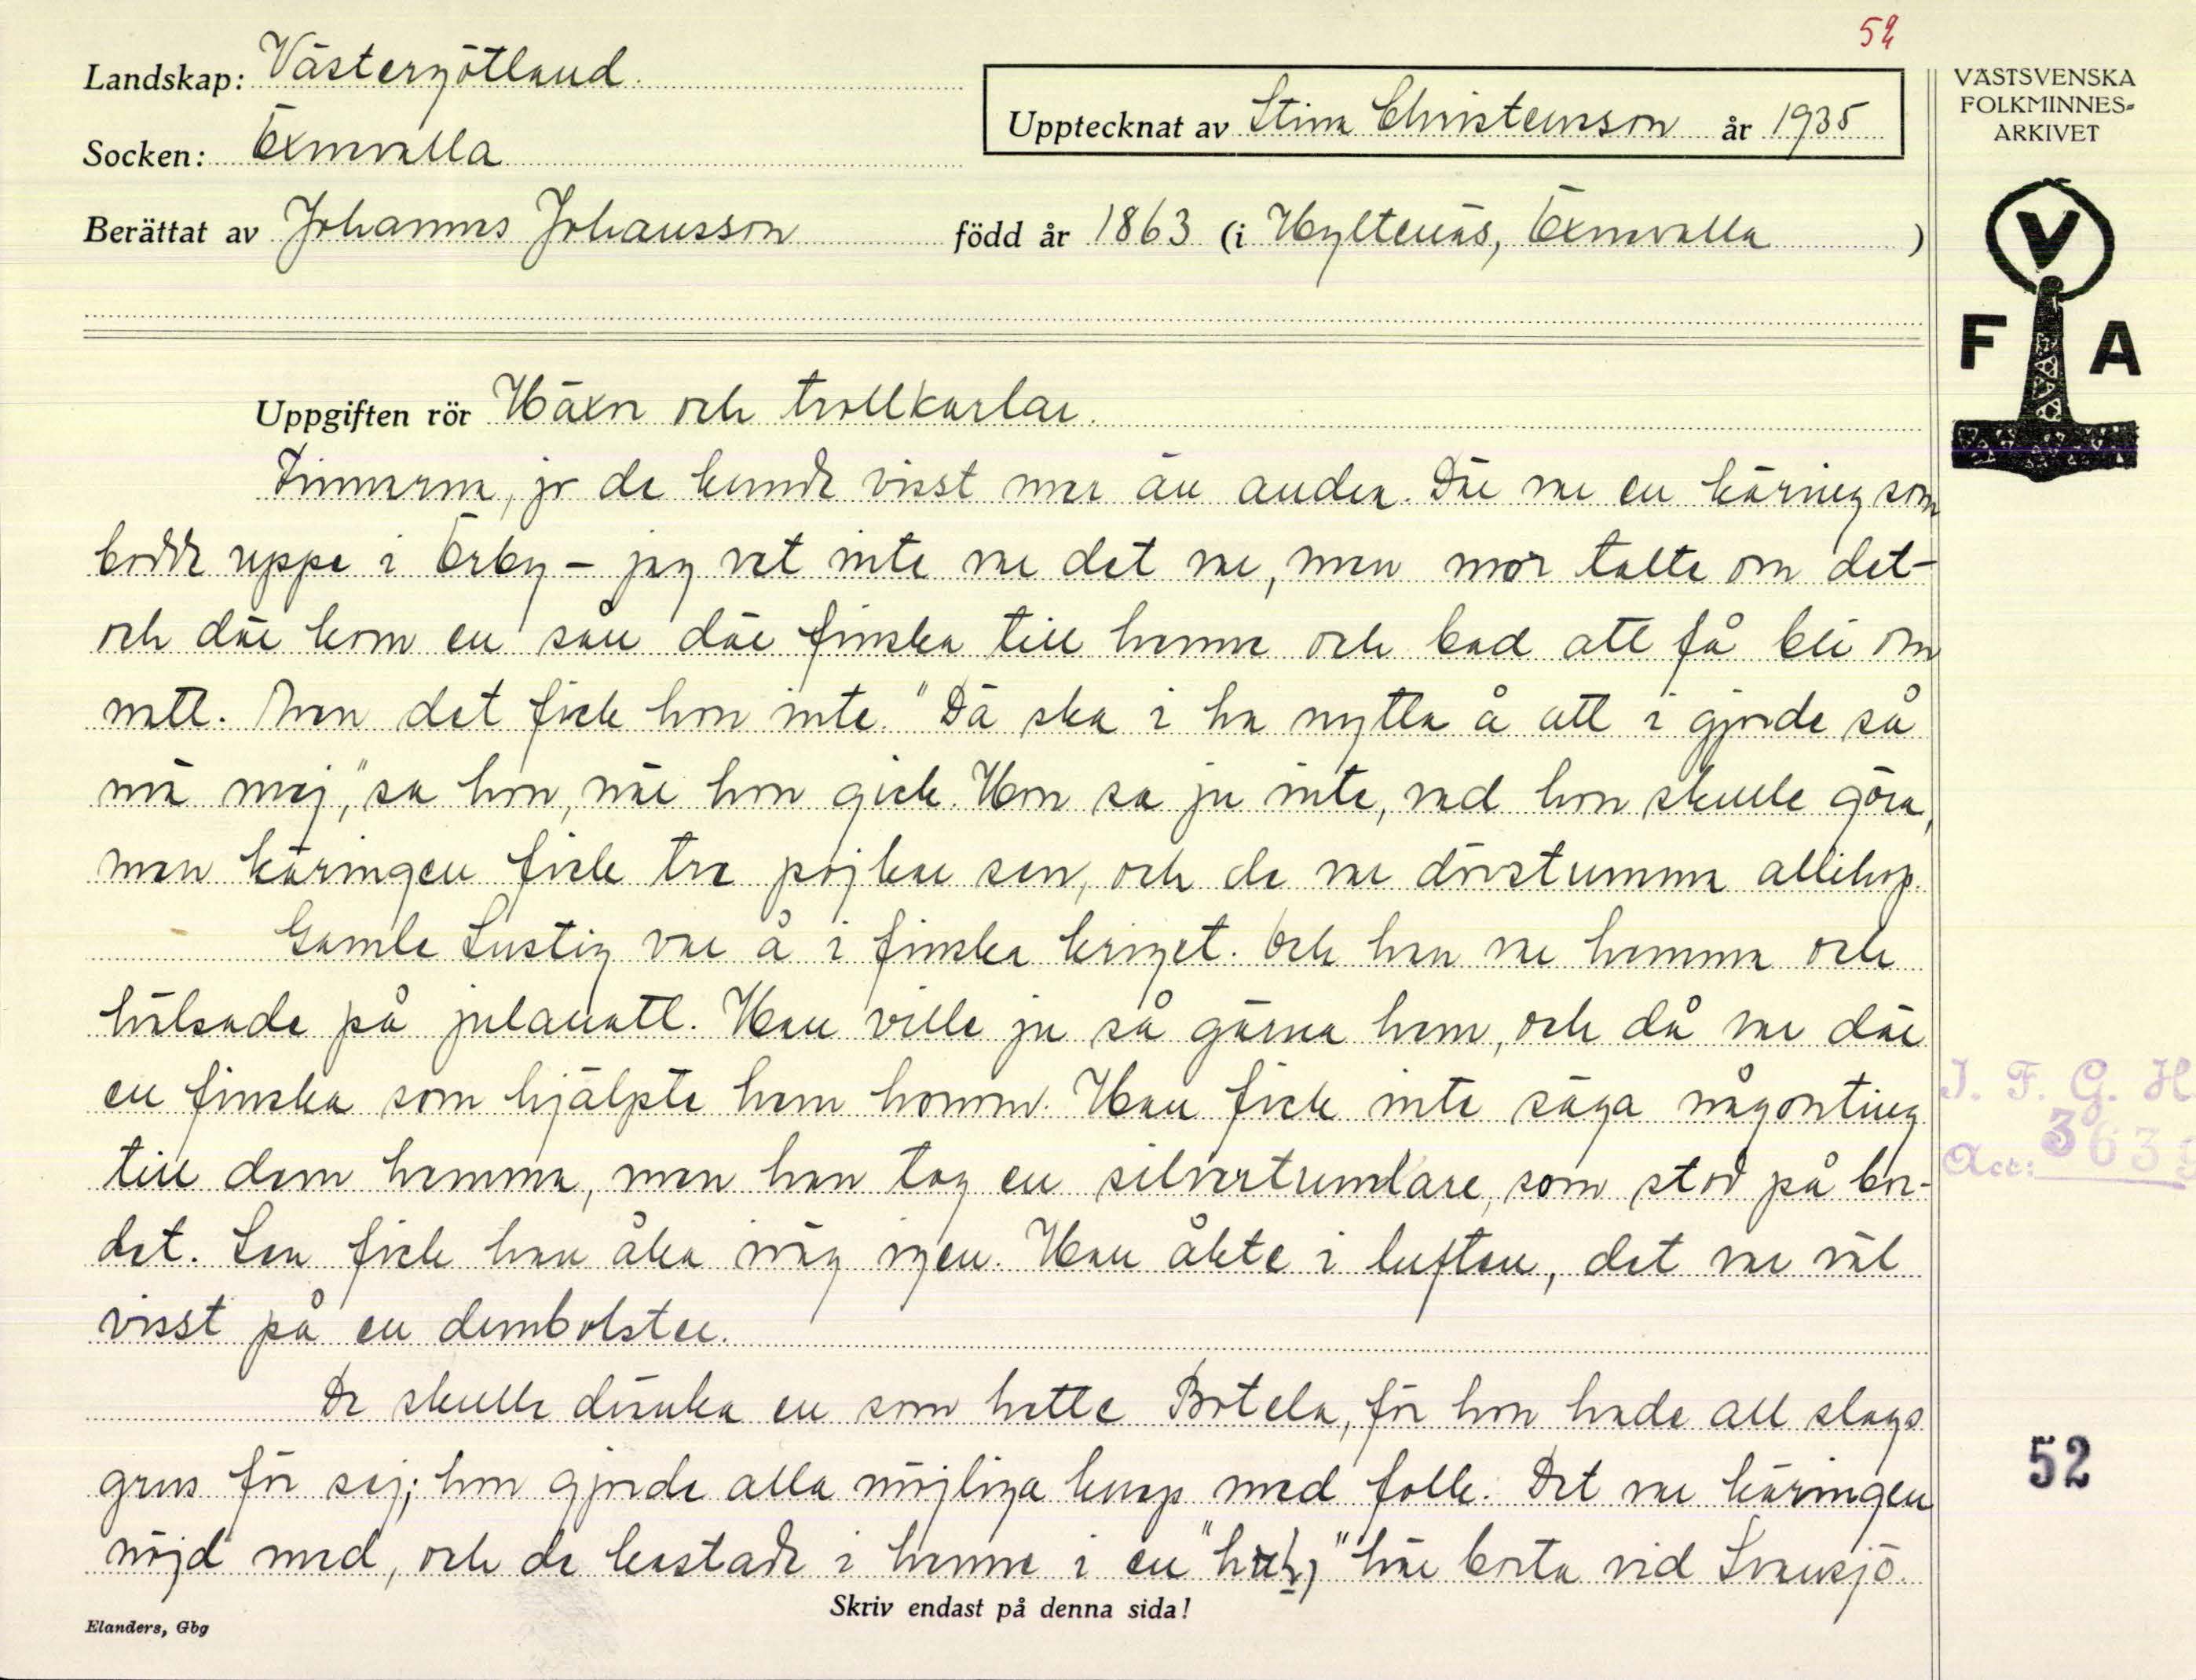 52
Landskap: Västergötland.
Socken: Öxnevalla
Upptecknat av Stina Christensson år 1935
VÄSTSVENSKA
FOLKMINNES-
ARKIVET
Berättat av Johannes Johansson född år 1863 (i Hyltenäs, Öxnevalla )
V
F A
Uppgiften rör Häxor och trollkarlar.
Finnarna, jo de kunde visst mer än andra. Där var en käring som
bodde uppe i Örby – jag vet inte var det var, men mor talte om det –
och där kom en sån där finska till henne och bad att få bli över
natt. Men det fick hon inte. "Dä ska i ha nytta å att i gjorde så
mä mej," sa hon, när hon gick. Hon sa ju inte, vad hon skulle göra,
men käringen fick tre pojkar sen, och de var dövstumma allihop.
Gamle Lustig var å i finska kriget. Och han var hemma och
hälsade på julanatt. Han ville ju så gärna hem, och då var där
en finska som hjälpte hem honom. Han fick inte säga någonting
till dem hemma, men han tog en silvertumlare, som stod på bor-
det. Sen fick han åka iväg igen. Han åkte i luften, det var väl
visst på en dunbolster.
De skulle dränka en som hette Botela, för hon hade all slags
grus för sej; hon gjorde alla möjliga knep med folk. Det var käringen
nöjd med, och de kastade i henne i en " " här borta vid Svansjö.
I. F. G. H.
Acc: 3635
52
Skriv endast på denna sida!
Elanders, Gbg